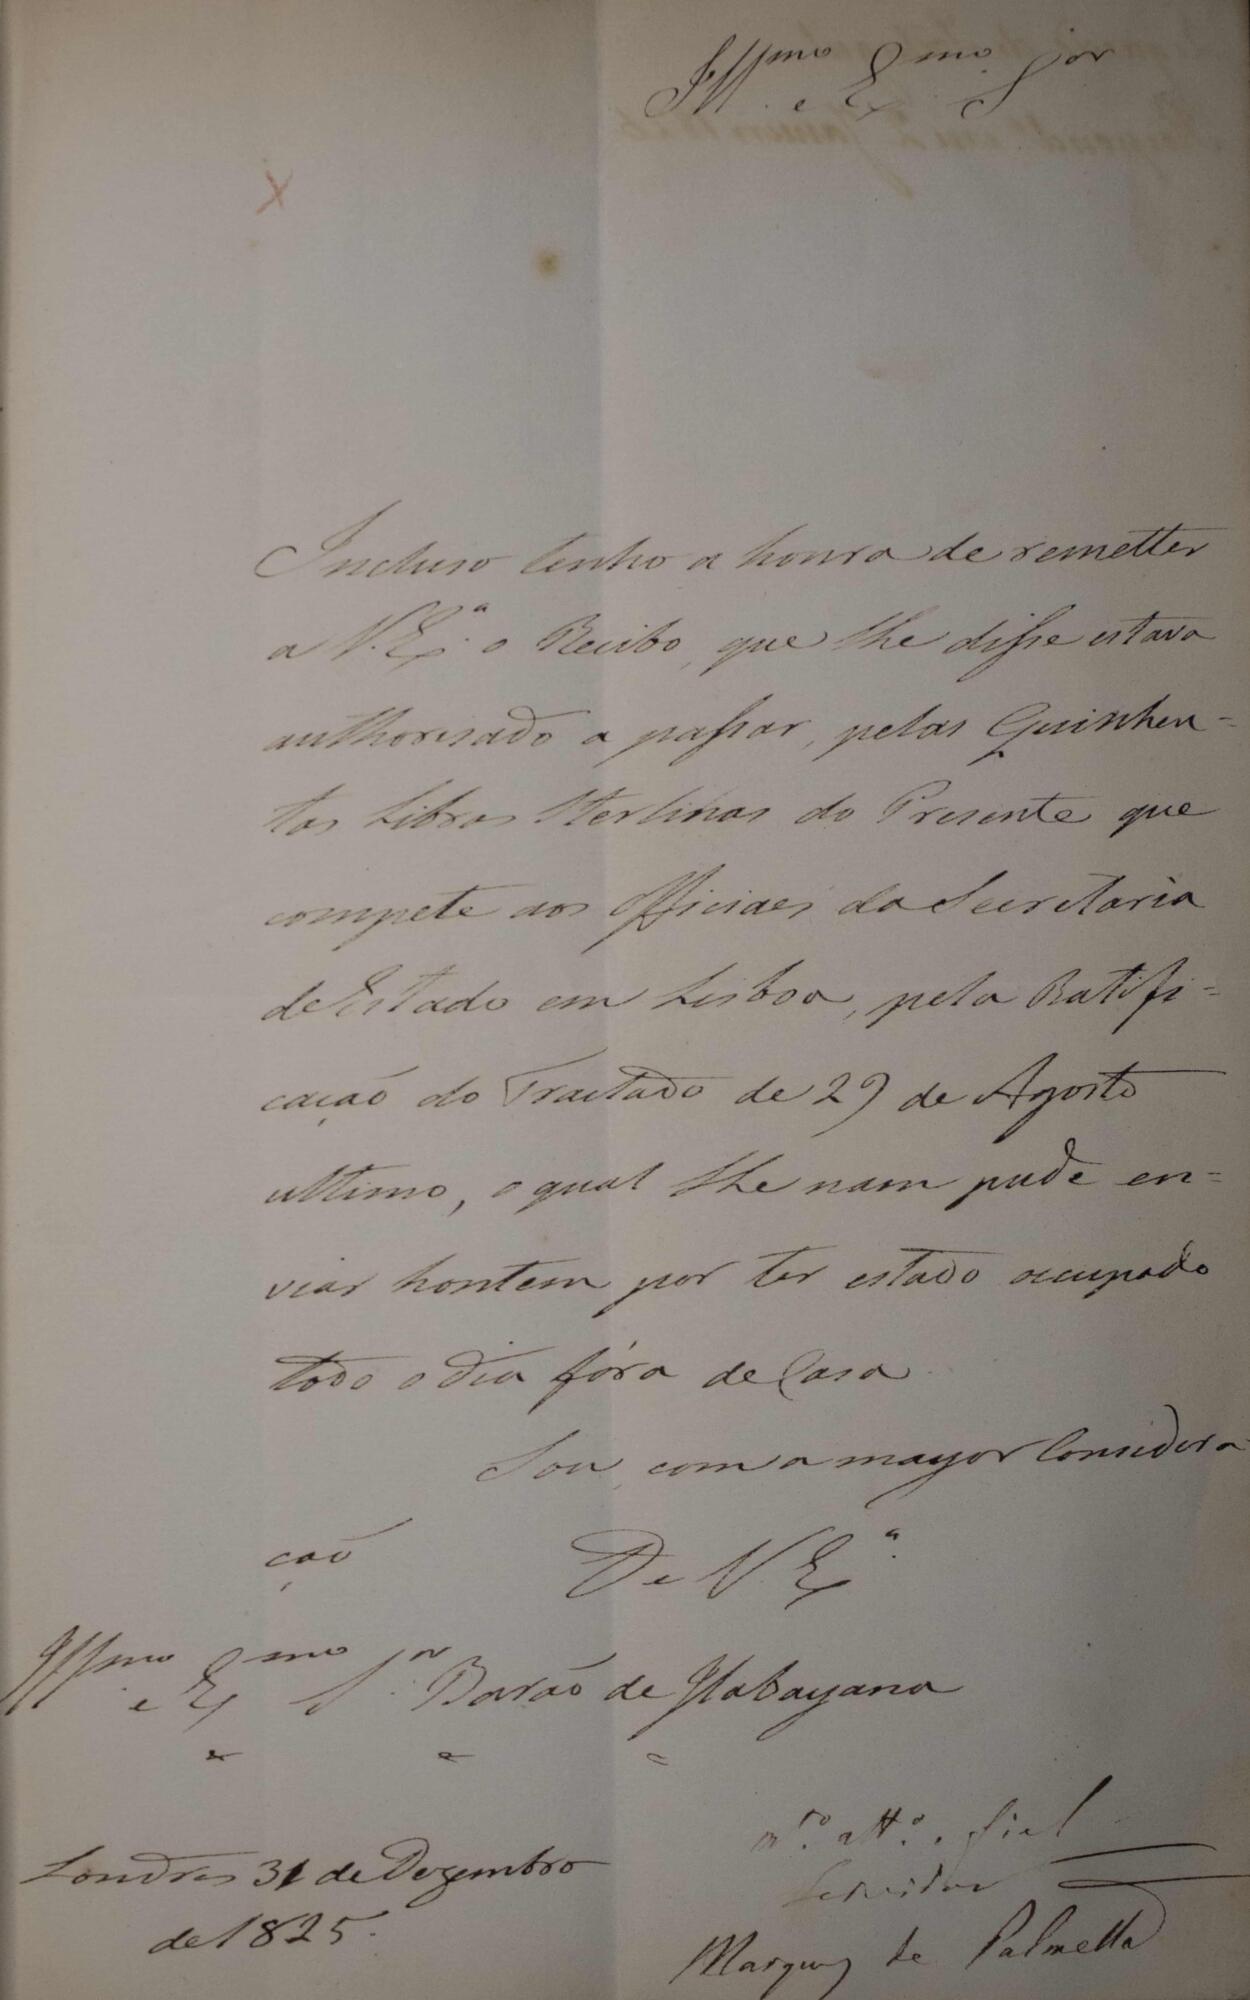 Illmo e Exmo Sor
Incluso tenho a honra de remetter
a V. Exª o Recibo, que lhe disse estava
authorisado a passar, pelas Quinhen=
tas Libras Sterlinas do Presente que
compete aos Officiaes da Secretaria
de Estado em Lisboa, pela Ratifi=
cação do Tractado de 29 de Agosto
ultimo, o qual lhe nam pude en=
viar hontem por ter estado occupado
todo o dia fóra de Casa.
Sou, com a mayor Considera
ção
De V. Exª
Illmo e Exmo Snr Barão de Itabayana
Londres 31 de Dezembro
de 1825.
mto. atto. e fiel
Servidor
Marquez de Palmella